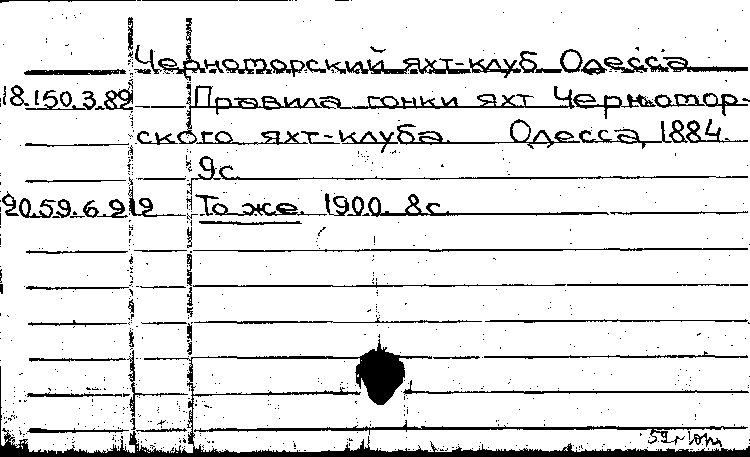 Черноморский яхт-клуб. Одесса
18.150.3.89 Правила гонки яхт Черномор-
ского яхт-клуба. Одесса, 1884.
9с.
20.59.6.212 То же. 1900. 8с.